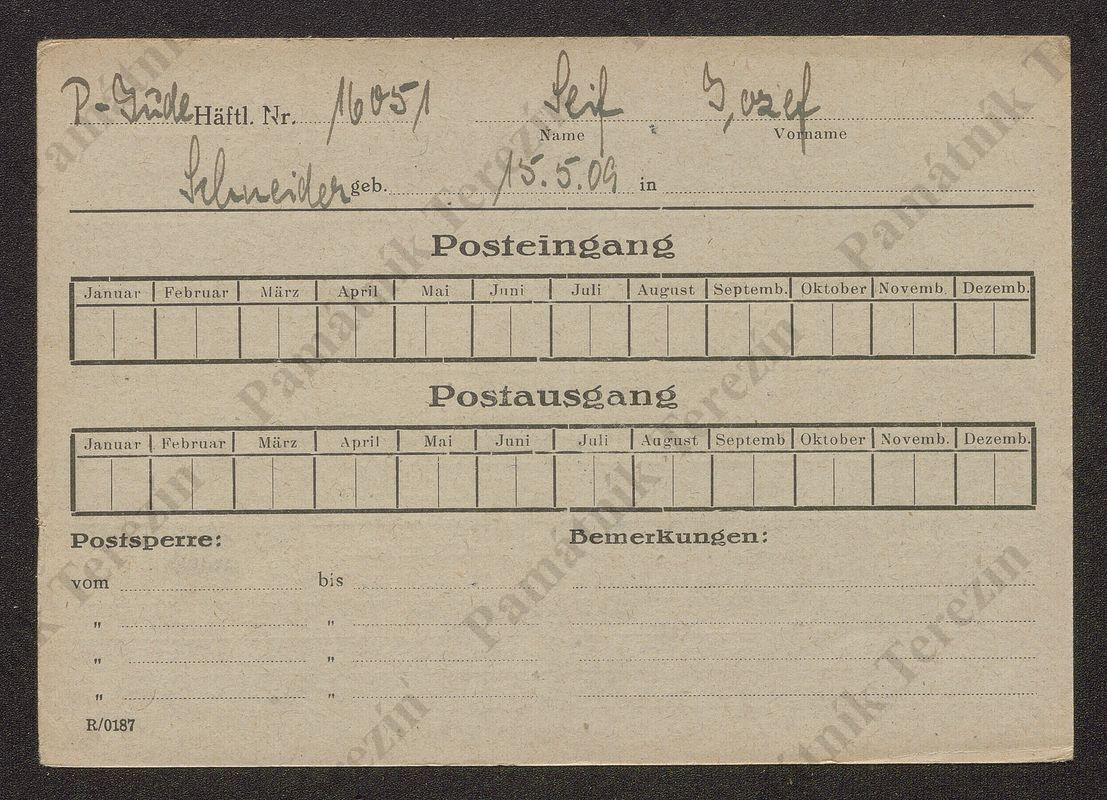 P-Jude Häftl. Nr. 16051 Seif Jozef
Name Vorname
Schneider geb. 15.5.09 in
Posteingang
Januar Februar März April Mai Juni Juli August Septemb. Oktober Novemb. Dezemb.
Postausgang
Januar Februar März April Mai Juni Juli August Septemb Oktober Novemb. Dezemb.
Postsperre: Bemerkungen:
vom bis
" "
" "
" "
R/0187
Památník Terezín